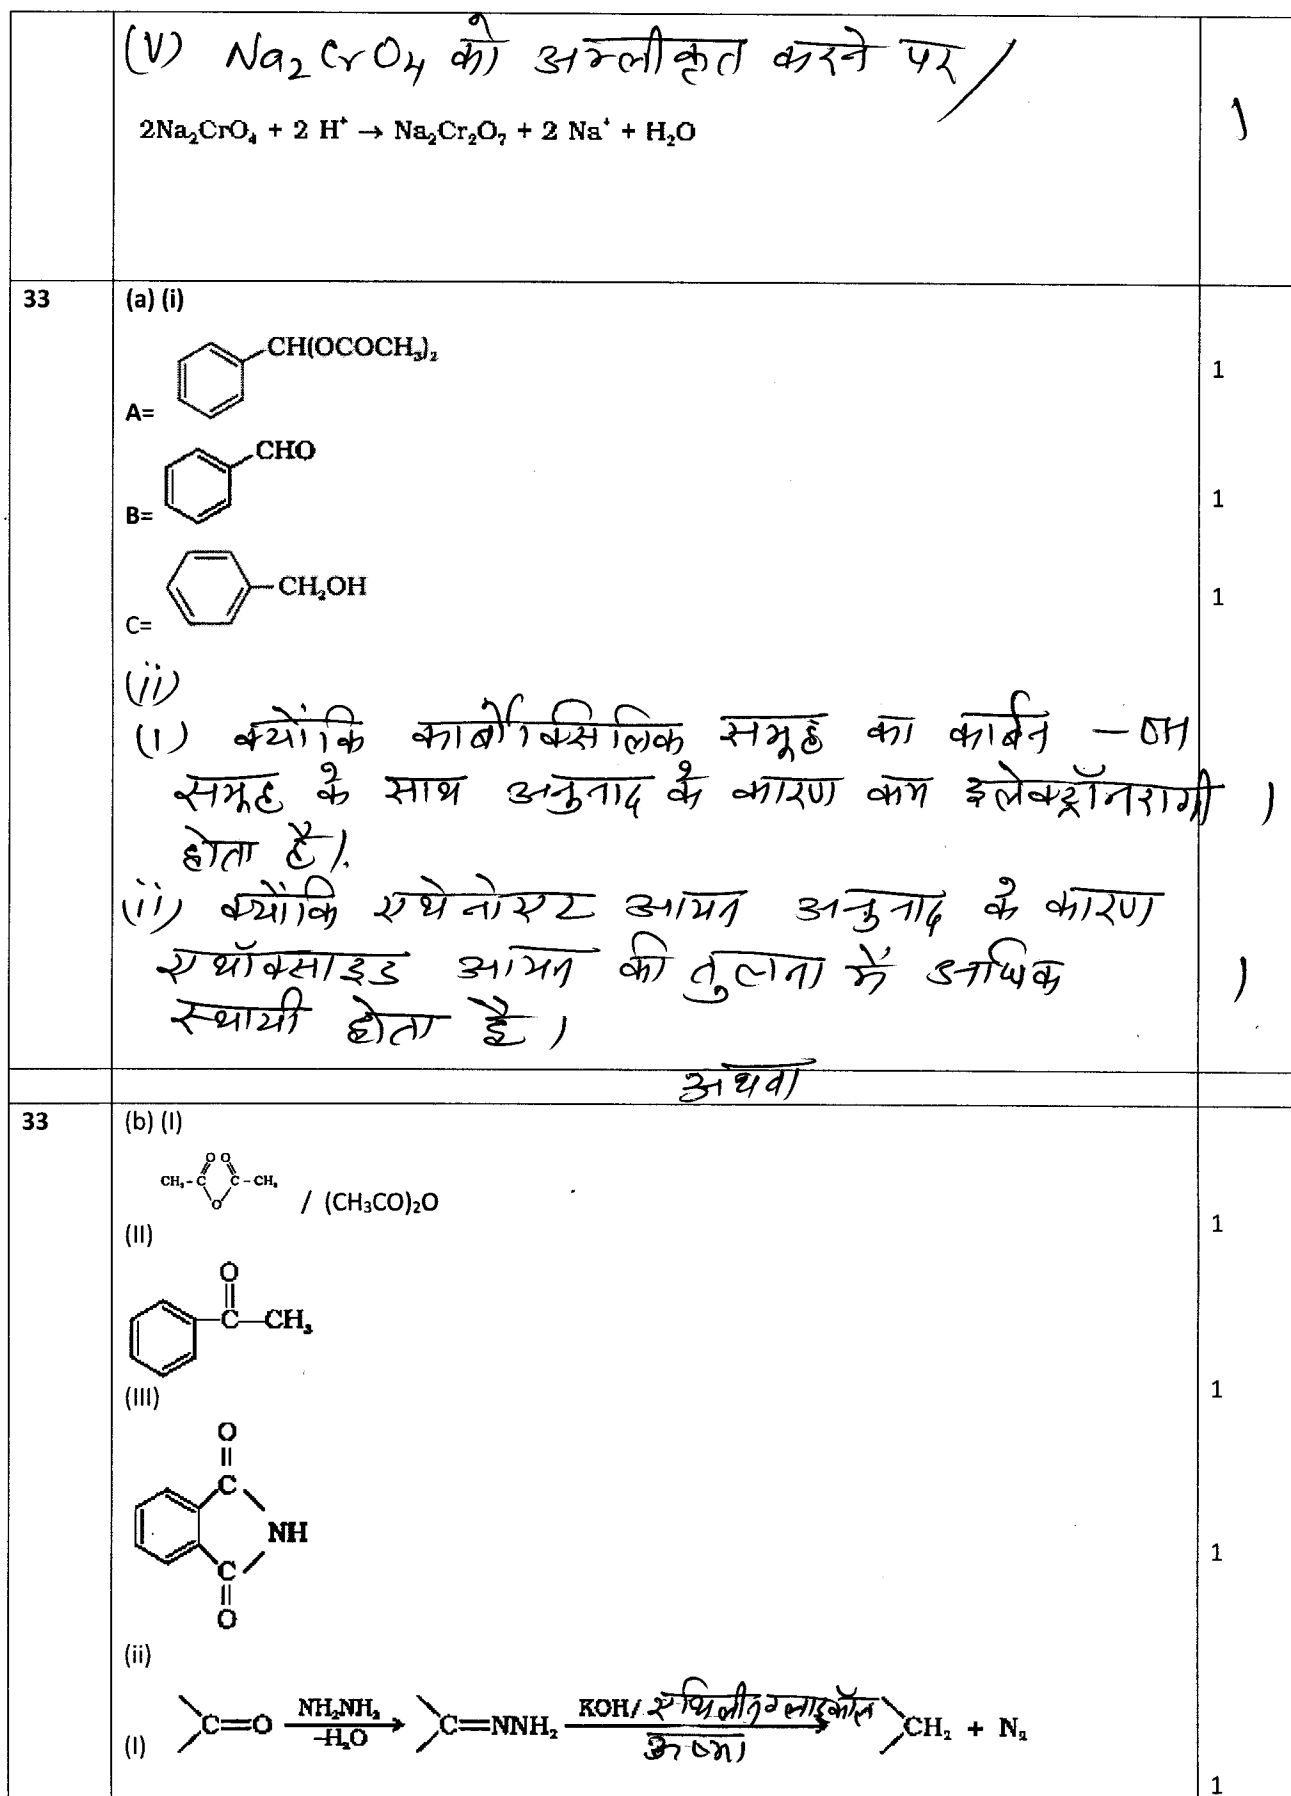 (V) Na₂CrO₄ को अम्लीकृत करने पर /
2Na₂CrO₄ + 2 H⁺ → Na₂Cr₂O₇ + 2 Na⁺ + H₂O
1
33
(a) (i)
CH(OCOCH₃)₂
A=
1
CHO
B=
1
CH₂OH
C=
1
(ii)
(i) क्योंकि कार्बोक्सिलिक समूह का कार्बन – OH
समूह के साथ अनुनाद के कारण कम इलेक्ट्रॉनरागी
होता है।
1
(ii) क्योंकि एथेनोएट आयन अनुनाद के कारण
एथॉक्साइड आयन की तुलना में अधिक
स्थायी होता है।
1
अथवा
33
(b) (I)
O O
CH₃-C C-CH₃
O
/ (CH₃CO)₂O
1
(II)
O
C—CH₃
1
(III)
O
C
NH
C
O
1
(ii)
(I) C=O NH₂NH₂ -H₂O C=NNH₂ KOH/ एथिलीन ग्लाइकॉल ऊष्मा CH₂ + N₂
1